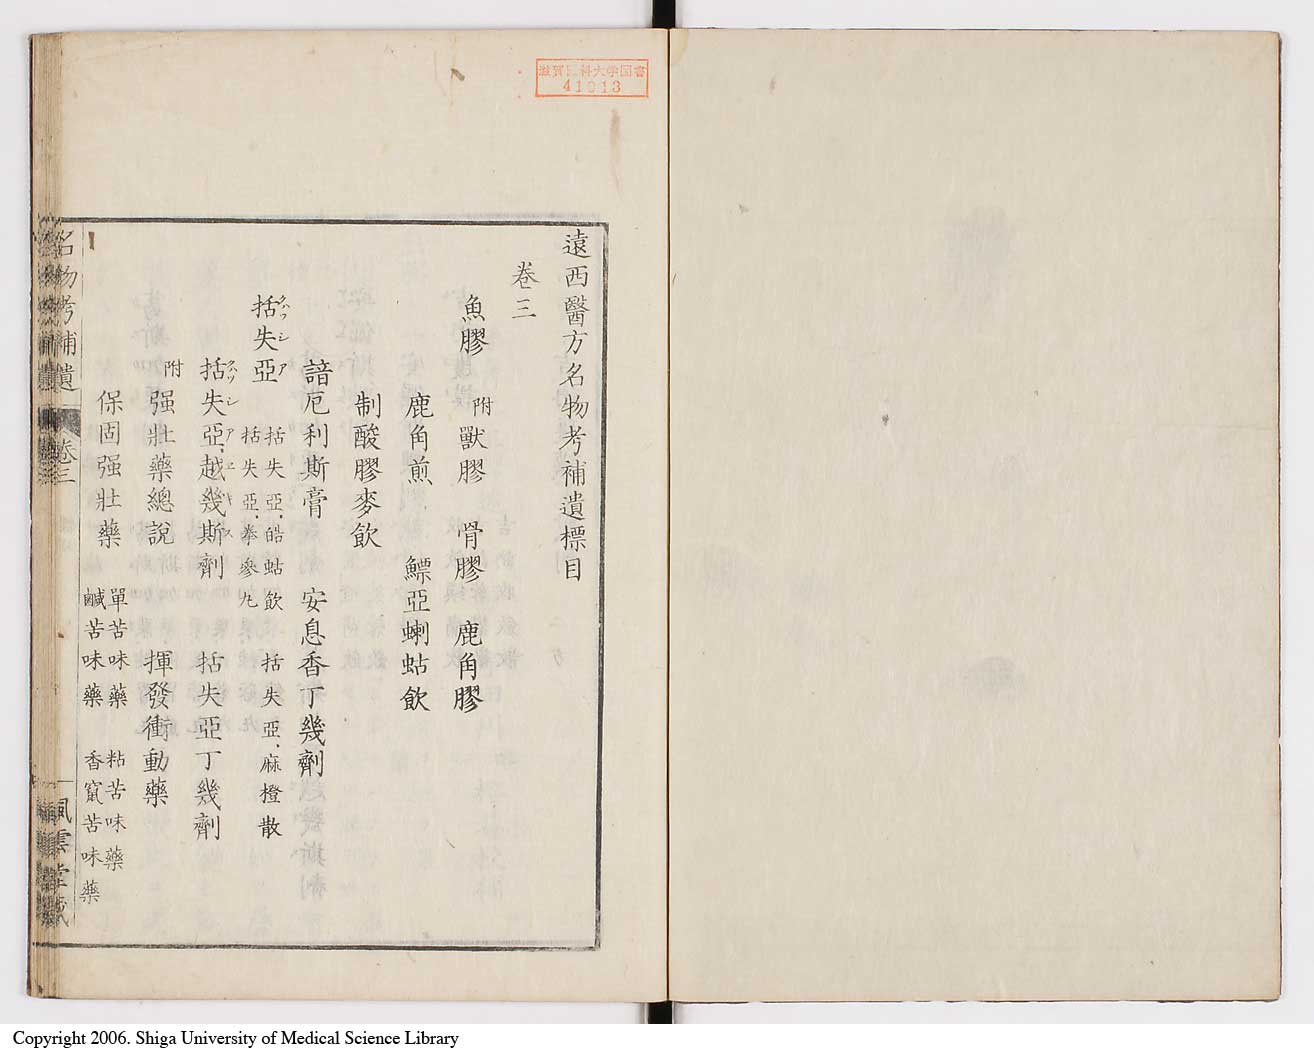 滋賀医科大学図書
41913
遠西醫方名物考補遺標目
卷三
魚膠 附 獸膠 骨膠 鹿角膠
鹿角煎 鰾亞蝲蛄飲
制酸膠麥飲
諳厄利斯膏 安息香丁幾劑
括失亞 クワッシア 括失亞、皓蛄飲 括失亞、麻橙散
括失亞、拳參丸
括失亞越幾斯劑 クワッシアエキス 括失亞丁幾劑
附 强壯藥總說 揮發衝動藥
保固强壯藥 單苦味藥 粘苦味藥
鹹苦味藥 香竄苦味藥
名物考補遺 卷三 風雲堂藏
Copyright 2006. Shiga University of Medical Science Library